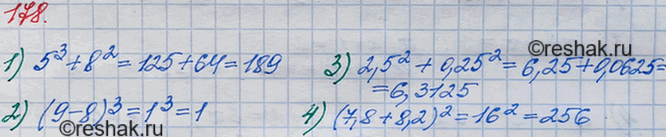 178.
1) 5³+8²=125+64=189
2) (9-8)³=1³=1
3) 2,5²+0,25²=6,25+0,0625=
=6,3125
4) (7,8+8,2)²=16²=256
©reshak.ru
©reshak.ru